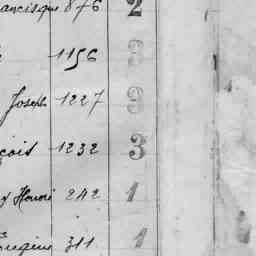 ancisque 876 2
1156 3
Joseph 1227 3
çois 1232 3
x Honoré 242 1
Eugène 311 1